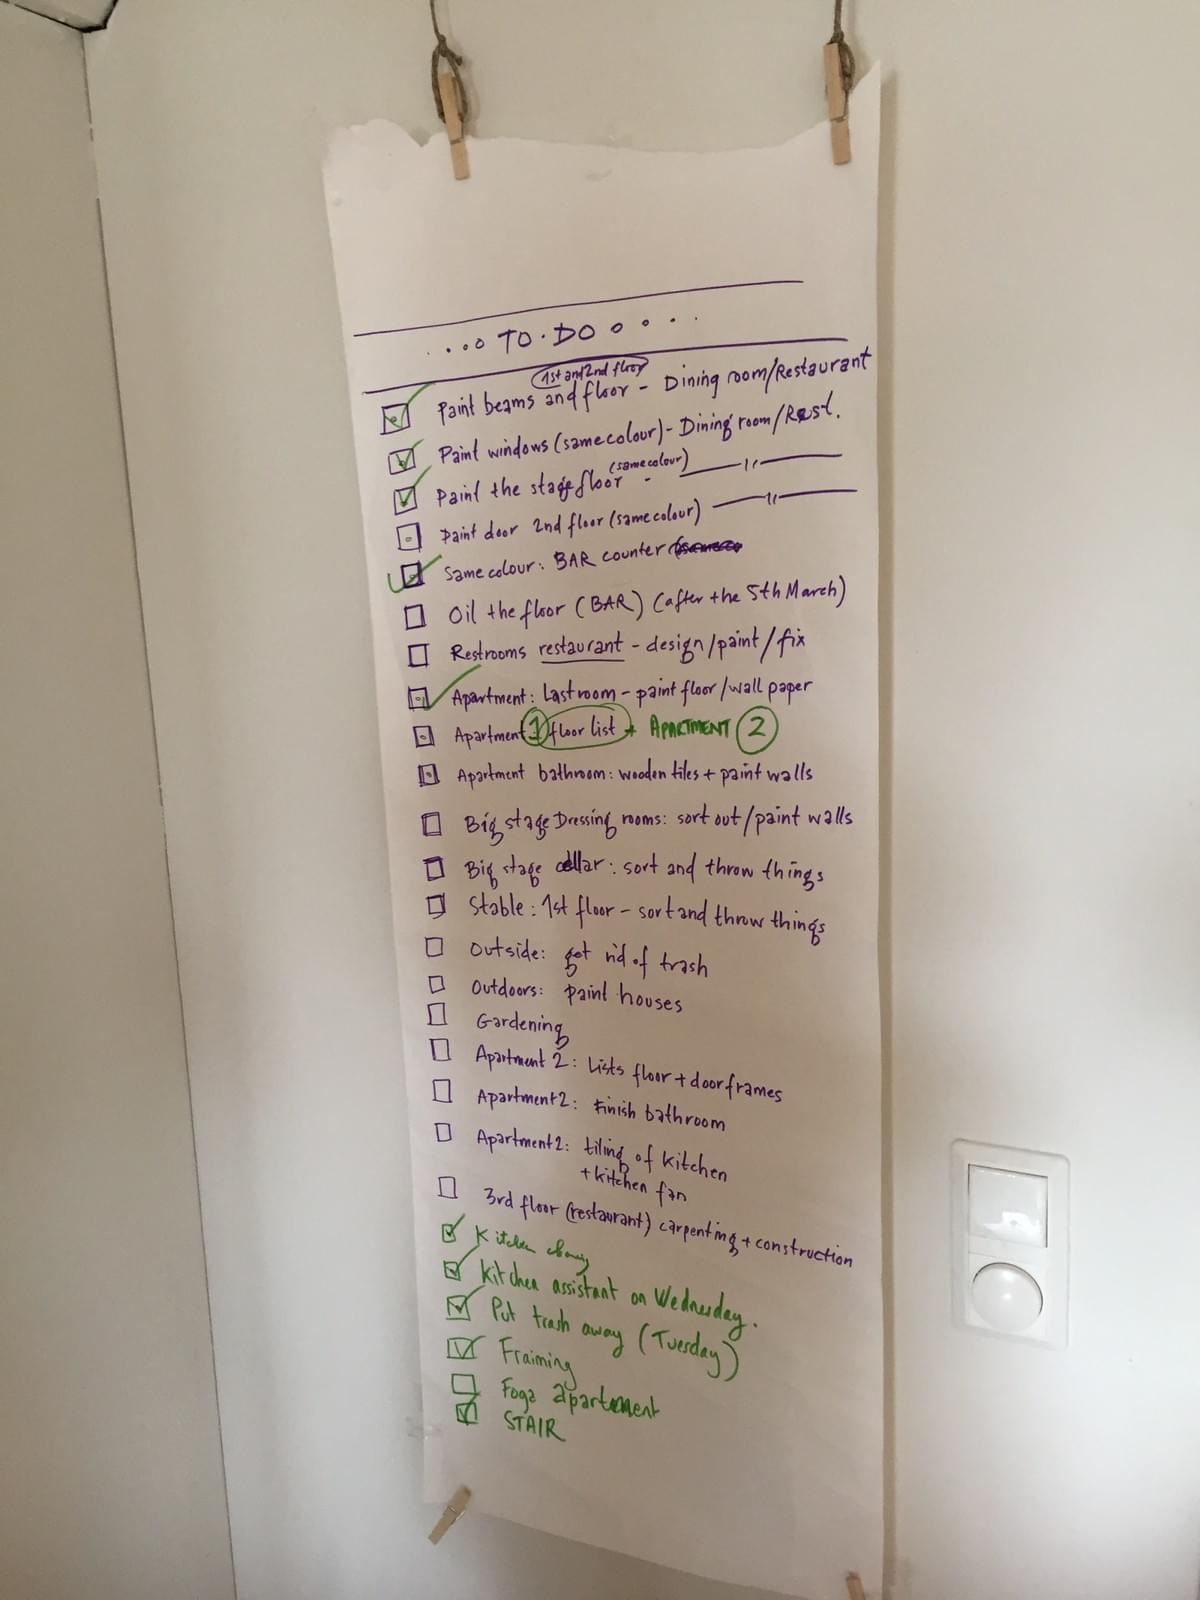 TO.DO
1st and 2nd floor
Paint beams and floor - Dining room/Restaurant
Paint windows (same colour) - Dining room/Rest.
(same colour)
Paint the stage floor - —— " ——
Paint door 2nd floor (same colour) —— " ——
Same colour: BAR counter
Oil the floor (BAR) (after the 5th March)
Restrooms restaurant - design/paint/fix
Apartment: Last room - paint floor/wall paper
Apartment 1 floor list + APARTMENT 2
Apartment bathroom: wooden tiles + paint walls
Big stage Dressing rooms: sort out/paint walls
Big stage cellar: sort and throw things
Stable: 1st floor - sort and throw things
Outside: get rid of trash
Outdoors: Paint houses
Gardening
Apartment 2: Lists floor + doorframes
Apartment 2: Finish bathroom
Apartment 2: tiling of kitchen
+ kitchen fan
3rd floor (restaurant) carpenting + construction
Kitchen
Kitchen assistant on Wednesday.
Put trash away (Tuesday)
Fraiming
Foga apartment
STAIR